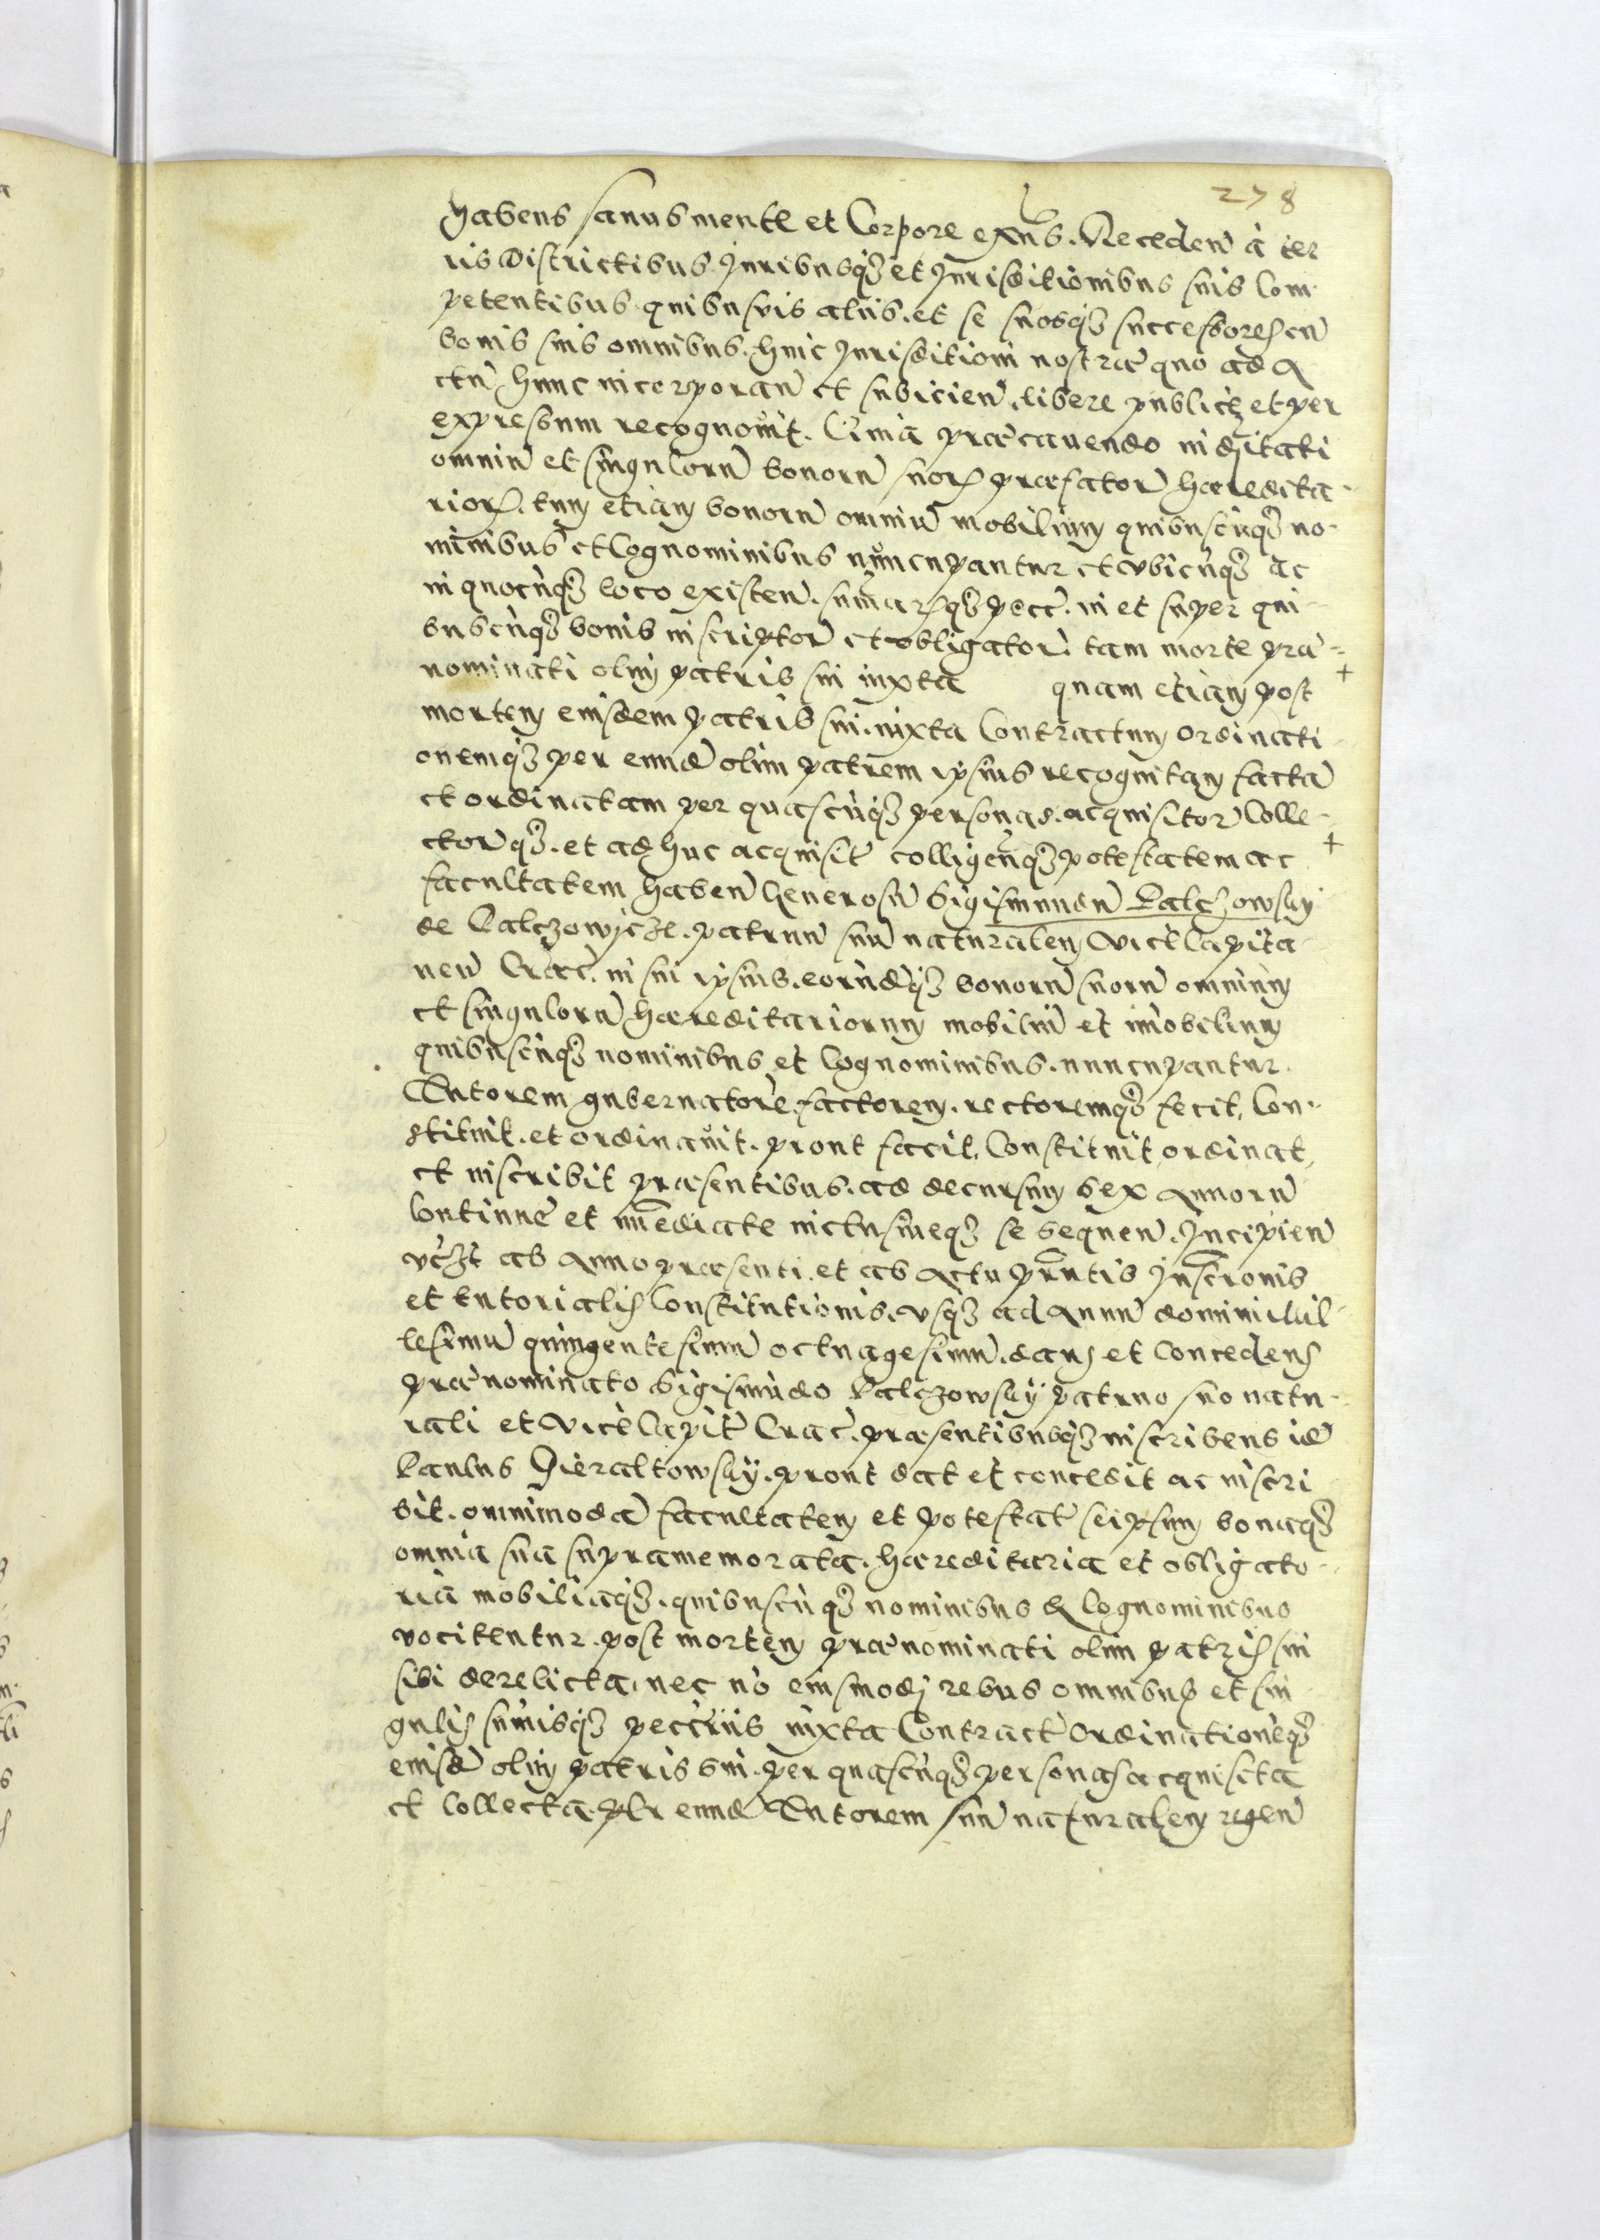 278
habens sanus mente et Corpore exn̄s. Recedeñ à ter
ris Districtibus Juribusq3 et Jurisditionibus suis Com
petentibus quibusvis aliis. et se suosq3 successores cũ
bonis suis omnibus. huic Jurisditioni nostræ quo ad A
ctũ hunc incorporañ et subicieñ. libere publicè et per
expressum recognouit. Quia præcauendo indẽnitati
omniũ et singulorũ bonorũ suor. præfator̃ hæredita
rior. tum etiam bonorũ omniũ mobilium quibuscũq3 no
minibus et Cognominibus nuncupantur et vbicũq3 ac
in quocũq3 loco existeñ. sum̃arq3 pecc. in et super qui
buscũq3 bonis inscriptor̃ et obligator̃. tam morte præ=
nominati olim patris sui iuxta quam etiam post +
mortem eiusdem patris sui. iuxta Contractum Ordinati
onemq3 per eund̃ olim patrem ipsius recognitam factã
et ordinatam per quascũq3 personas. acquisitor̃ Colle
ctor̃q3. et adhuc acquisit̃ colligeñq3 potestatem ac +
facultatem habeñ Generosũ Sigismundũ Palczowsky
de Palczowicze. patruũ suũ naturalem Vicè Capita
neũ Crac̃. in sui ipsius. eorũdq3 bonorũ suorũ omnium
et singulorũ hæreditariorum mobiliũ et im̃obilium
quibuscũq3 nominibus et Cognominibus. nuncupantur.
Tutorem gubernatorẽ. factorem. rectoremq3 fecit, Con
stituit. et ordinauit. prout facit, Constituit, ordinat,
et inscribit præsentibus. ad decursum Sex Annorũ
Continuè et im̃ediate inclusiueq3 se sequeñ. Incipieñ
vc̃zt ab Anno præsenti. et ab Actu prñtis Inscrõnis
et tutorialis Constitutionis. vsq3 ad Annũ domini Mil
lesimũ quingentesimũ octuagesimũ. dans et Concedens
prænominato Sigismũdo Palczowsky patruo suo natu
rali et Vicè Capit̃ Crac̃. præsentibusq3 inscribens id̃
Paulus Gieraltowsky. prout dat et concedit ac inscri
bit. omnimodã facultatem et potestat̃ seipsum bonaq3
omnia sua supramemorata. hæreditaria et obligato
ria mobiliaq3. quibuscũq3 nominibus & Cognominibus
vocitentur. post mortem prænominati olim patris sui
sibi derelicta, nec nõ eiusmodj rebus omnibus et sin
gulis sum̃isq3 pecc̃riis iuxta Contract̃ Ordinationẽq3
eiusd̃ olim patris sui. per quascũq3 personas acquisita
et Collecta. per eund̃ Tutorem suũ naturalem regeñ